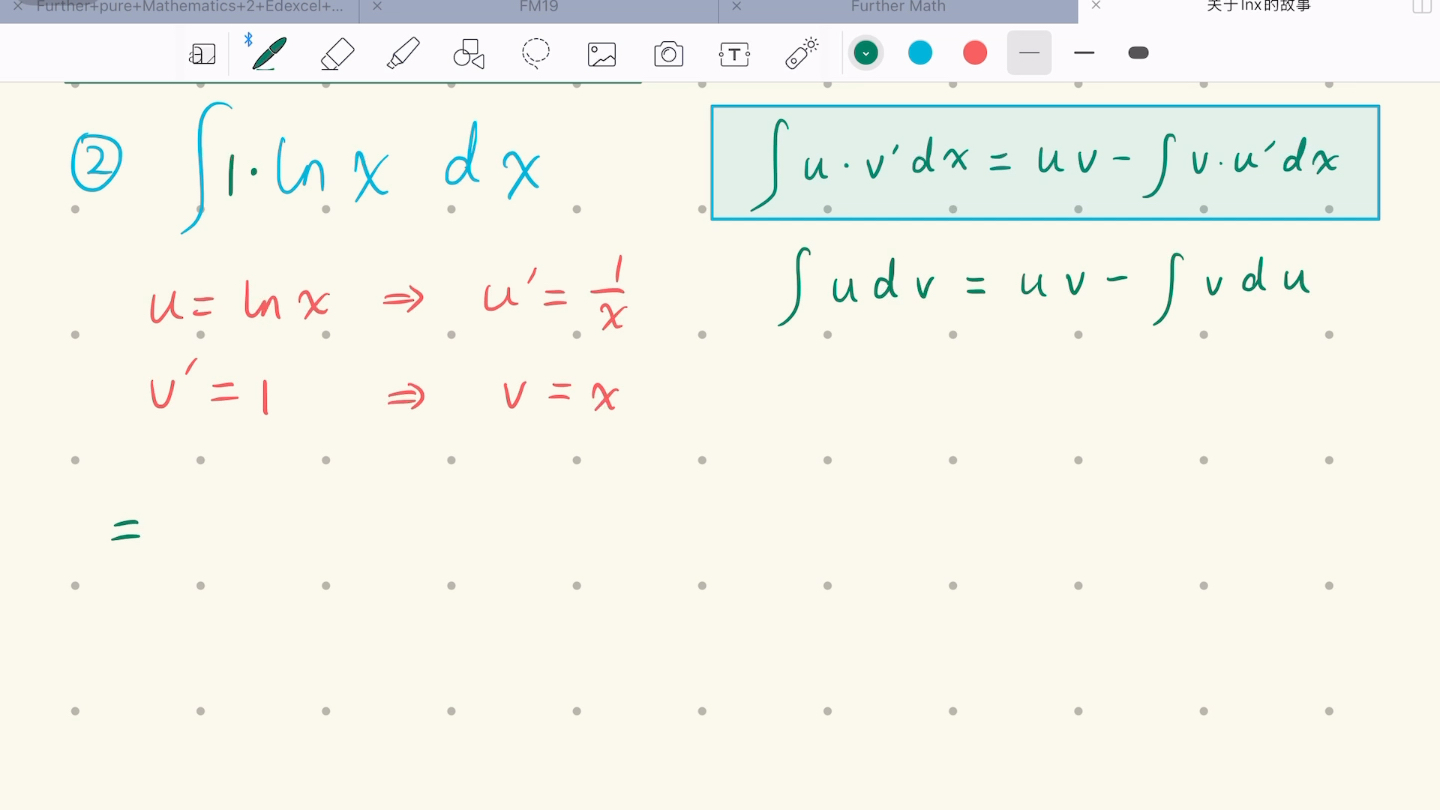 Further+pure+Mathematics+2+Edexcel+...
FM19
Further Math
关于lnx的故事
② ∫1·ln x dx
∫u·v′dx = uv-∫v·u′dx
u = ln x ⇒ u′ = 1/x
∫udv = uv-∫vdu
v′ = 1 ⇒ v = x
=